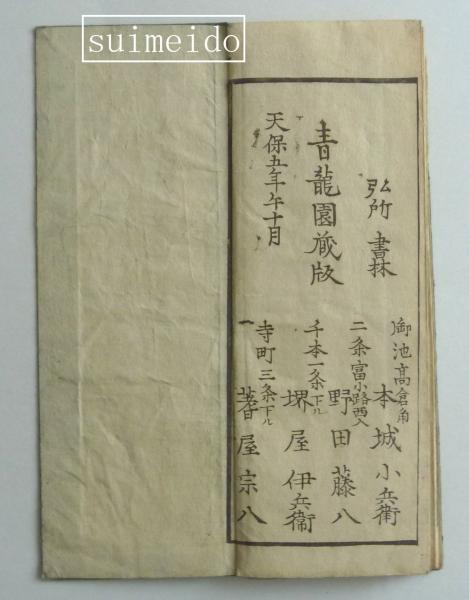 suimeido
弘所 書林
青龍園蔵版
天保五年午十月
御池高倉角
本城小兵衛
二条富小路西入
野田藤八
千本一条下ル
堺屋伊兵衛
寺町三条下ル
蓍屋宗八